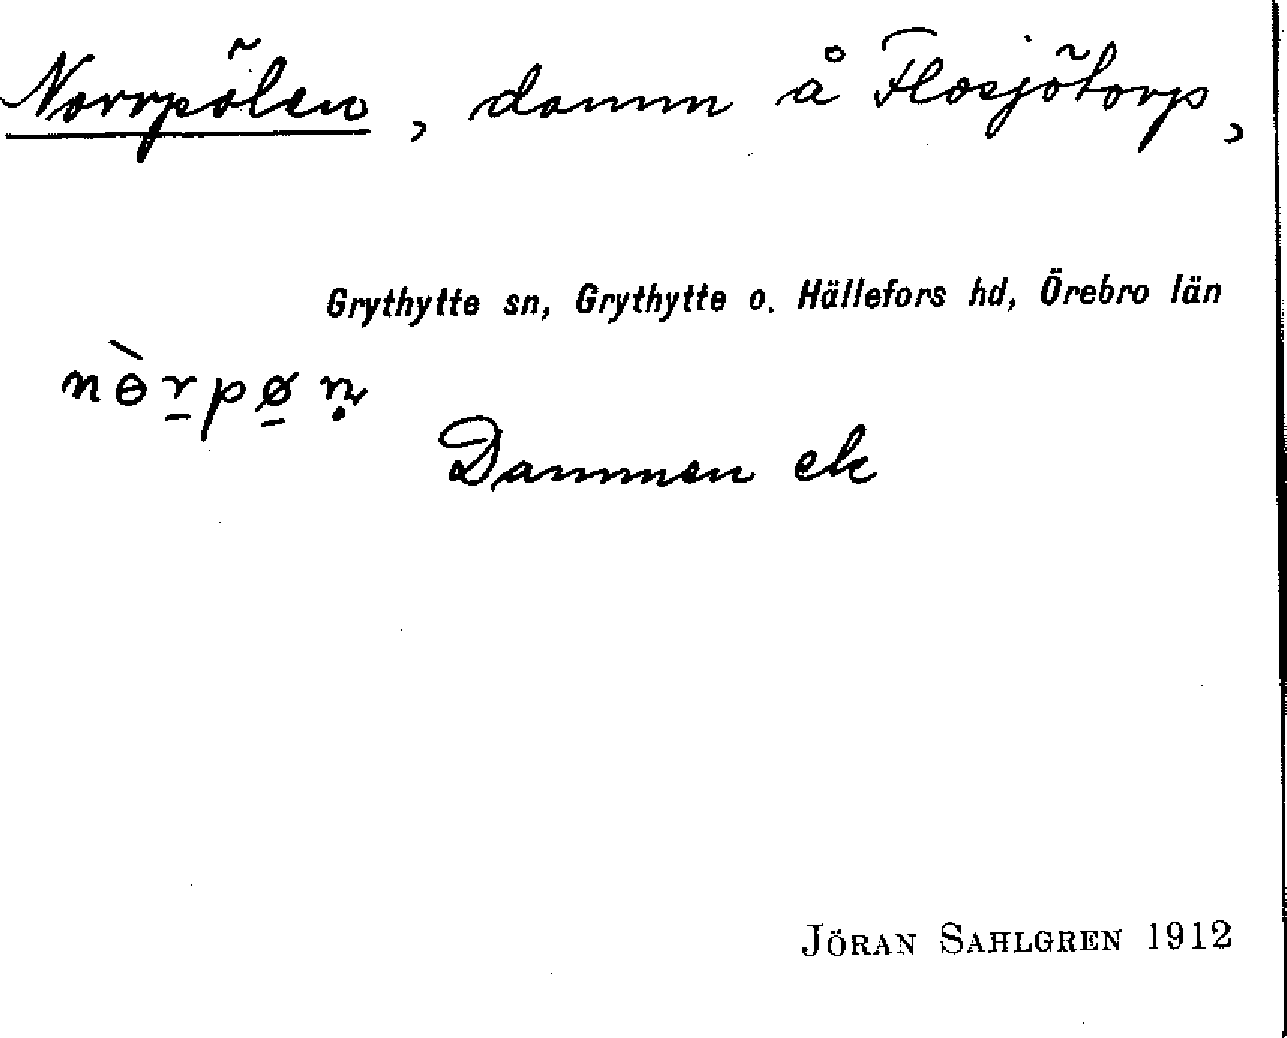 Norrpölen, damm å Flosjötorp,
Grythytte sn, Grythytte o. Hällefors hd, Örebro län
nɵ̀r̠pø̠ṇ
Dammen ek
JÖRAN SAHLGREN 1912